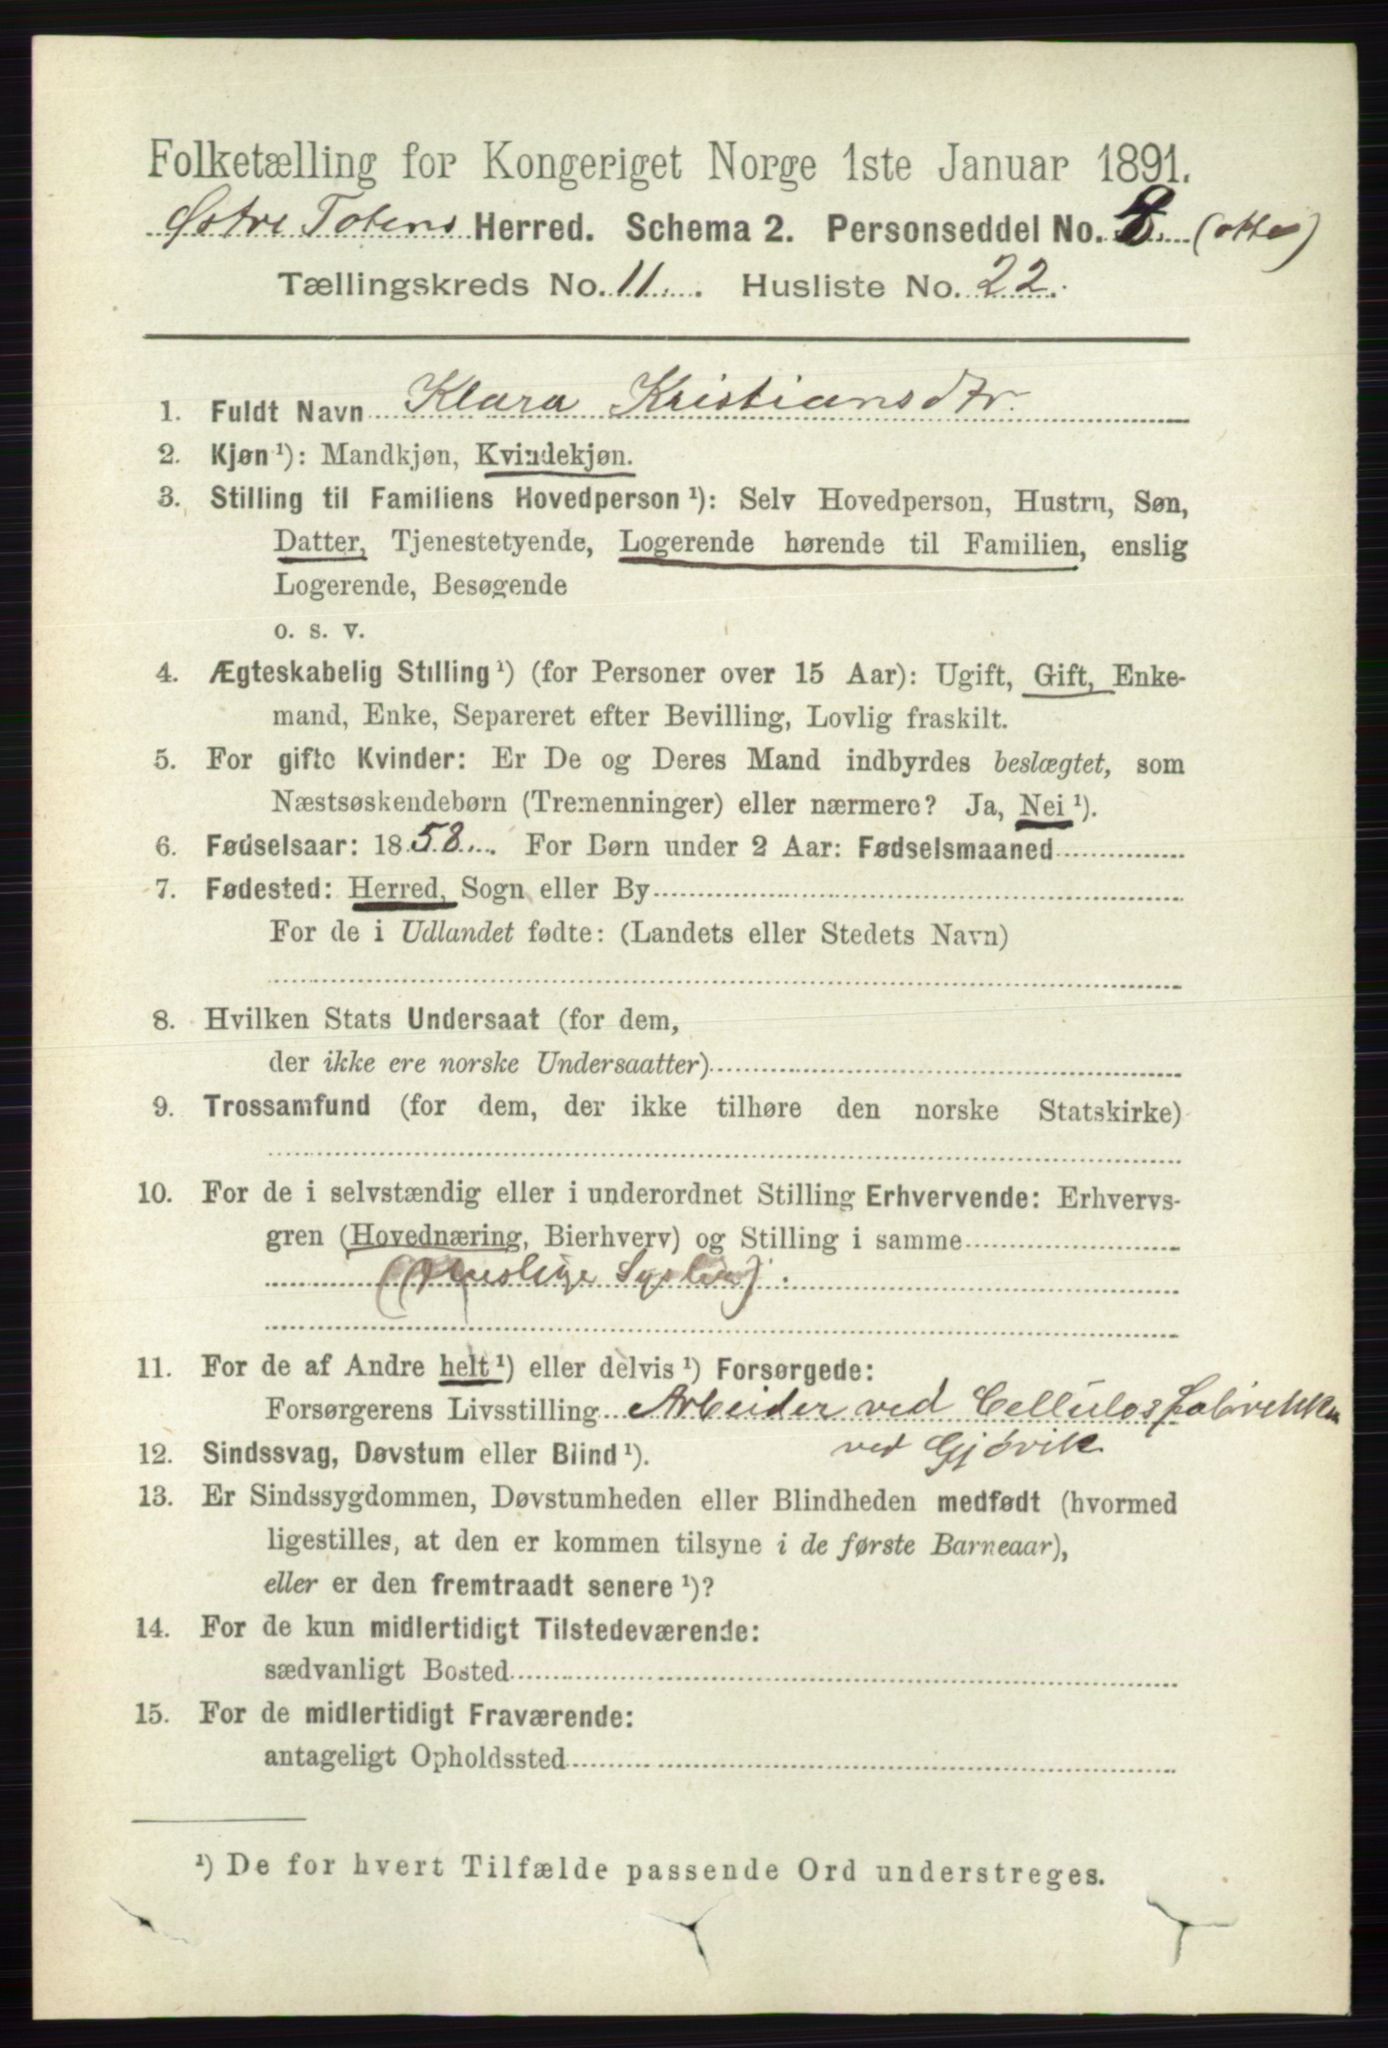 Folketælling for Kongeriget Norge 1ste Januar 1891.
Østre Totens Herred. Schema 2. Personseddel No. 8 (otte)
Tællingskreds No. 11. Husliste No. 22.
1. Fuldt Navn Klara Kristiansdtr.
2. Kjøn ¹): Mandkjøn, Kvindekjøn.
3. Stilling til Familiens Hovedperson ¹): Selv Hovedperson, Hustru, Søn,
Datter, Tjenestetyende, Logerende hørende til Familien, enslig
Logerende, Besøgende
o. s. v.
4. Ægteskabelig Stilling ¹) (for Personer over 15 Aar): Ugift, Gift, Enke-
mand, Enke, Separeret efter Bevilling, Lovlig fraskilt.
5. For gifte Kvinder: Er De og Deres Mand indbyrdes beslægtet, som
Næstsøskendebørn (Tremenninger) eller nærmere? Ja, Nei ¹).
6. Fødselsaar: 1858. For Børn under 2 Aar: Fødselsmaaned
7. Fødested: Herred, Sogn eller By
For de i Udlandet fødte: (Landets eller Stedets Navn)
8. Hvilken Stats Undersaat (for dem,
der ikke ere norske Undersaatter)
9. Trossamfund (for dem, der ikke tilhøre den norske Statskirke)
10. For de i selvstændig eller i underordnet Stilling Erhvervende: Erhvervs-
gren (Hovednæring, Bierhverv) og Stilling i samme
(Huslige Sysler).
11. For de af Andre helt ¹) eller delvis ¹) Forsørgede:
Forsørgerens Livsstilling Arbeider ved Cellulosfabrikken
ved Gjøvik
12. Sindssvag, Døvstum eller Blind ¹).
13. Er Sindssygdommen, Døvstumheden eller Blindheden medfødt (hvormed
ligestilles, at den er kommen tilsyne i de første Barneaar),
eller er den fremtraadt senere ¹)?
14. For de kun midlertidigt Tilstedeværende:
sædvanligt Bosted
15. For de midlertidigt Fraværende:
antageligt Opholdssted
¹) De for hvert Tilfælde passende Ord understreges.